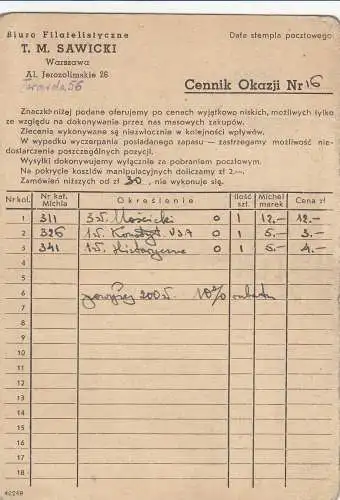 Biuro Filatelistyczne
Data stempla pocztowego:
T. M. SAWICKI
Warszawa
Al. Jerozolimskie 26
Twarda 56
Cennik Okazji Nr 16
Znaczki niżej podane oferujemy po cenach wyjątkowo niskich, możliwych tylko
ze względu na dokonywanie przez nas masowych zakupów.
Zlecenia wykonywane są niezwłocznie w kolejności wpływów.
W wypadku wyczerpania posiadanego zapasu — zastrzegamy możliwość nie-
dostarczenia poszczególnych pozycji.
Wysyłki dokonywujemy wyłącznie za pobraniem pocztowym.
Na pokrycie kosztów manipulacyjnych doliczamy zł 2.—.
Zamówień niższych od zł 30, nie wykonuje się.
Nr kol. Nr kat. Michla Określenie Ilość szt. Michel marek Cena zł
1 311 3 zł. Mościcki O 1 12.— 12.—
2 326 1 zł. Konstyt. USA O 1 5.— 3.—
3 341 1 zł. Historyczne O 1 5.— 4.—
4
5
6 powyżej 200 zł. 10% rabatu
7
8
9
10
11
12
13
14
15
16
17
18
42249